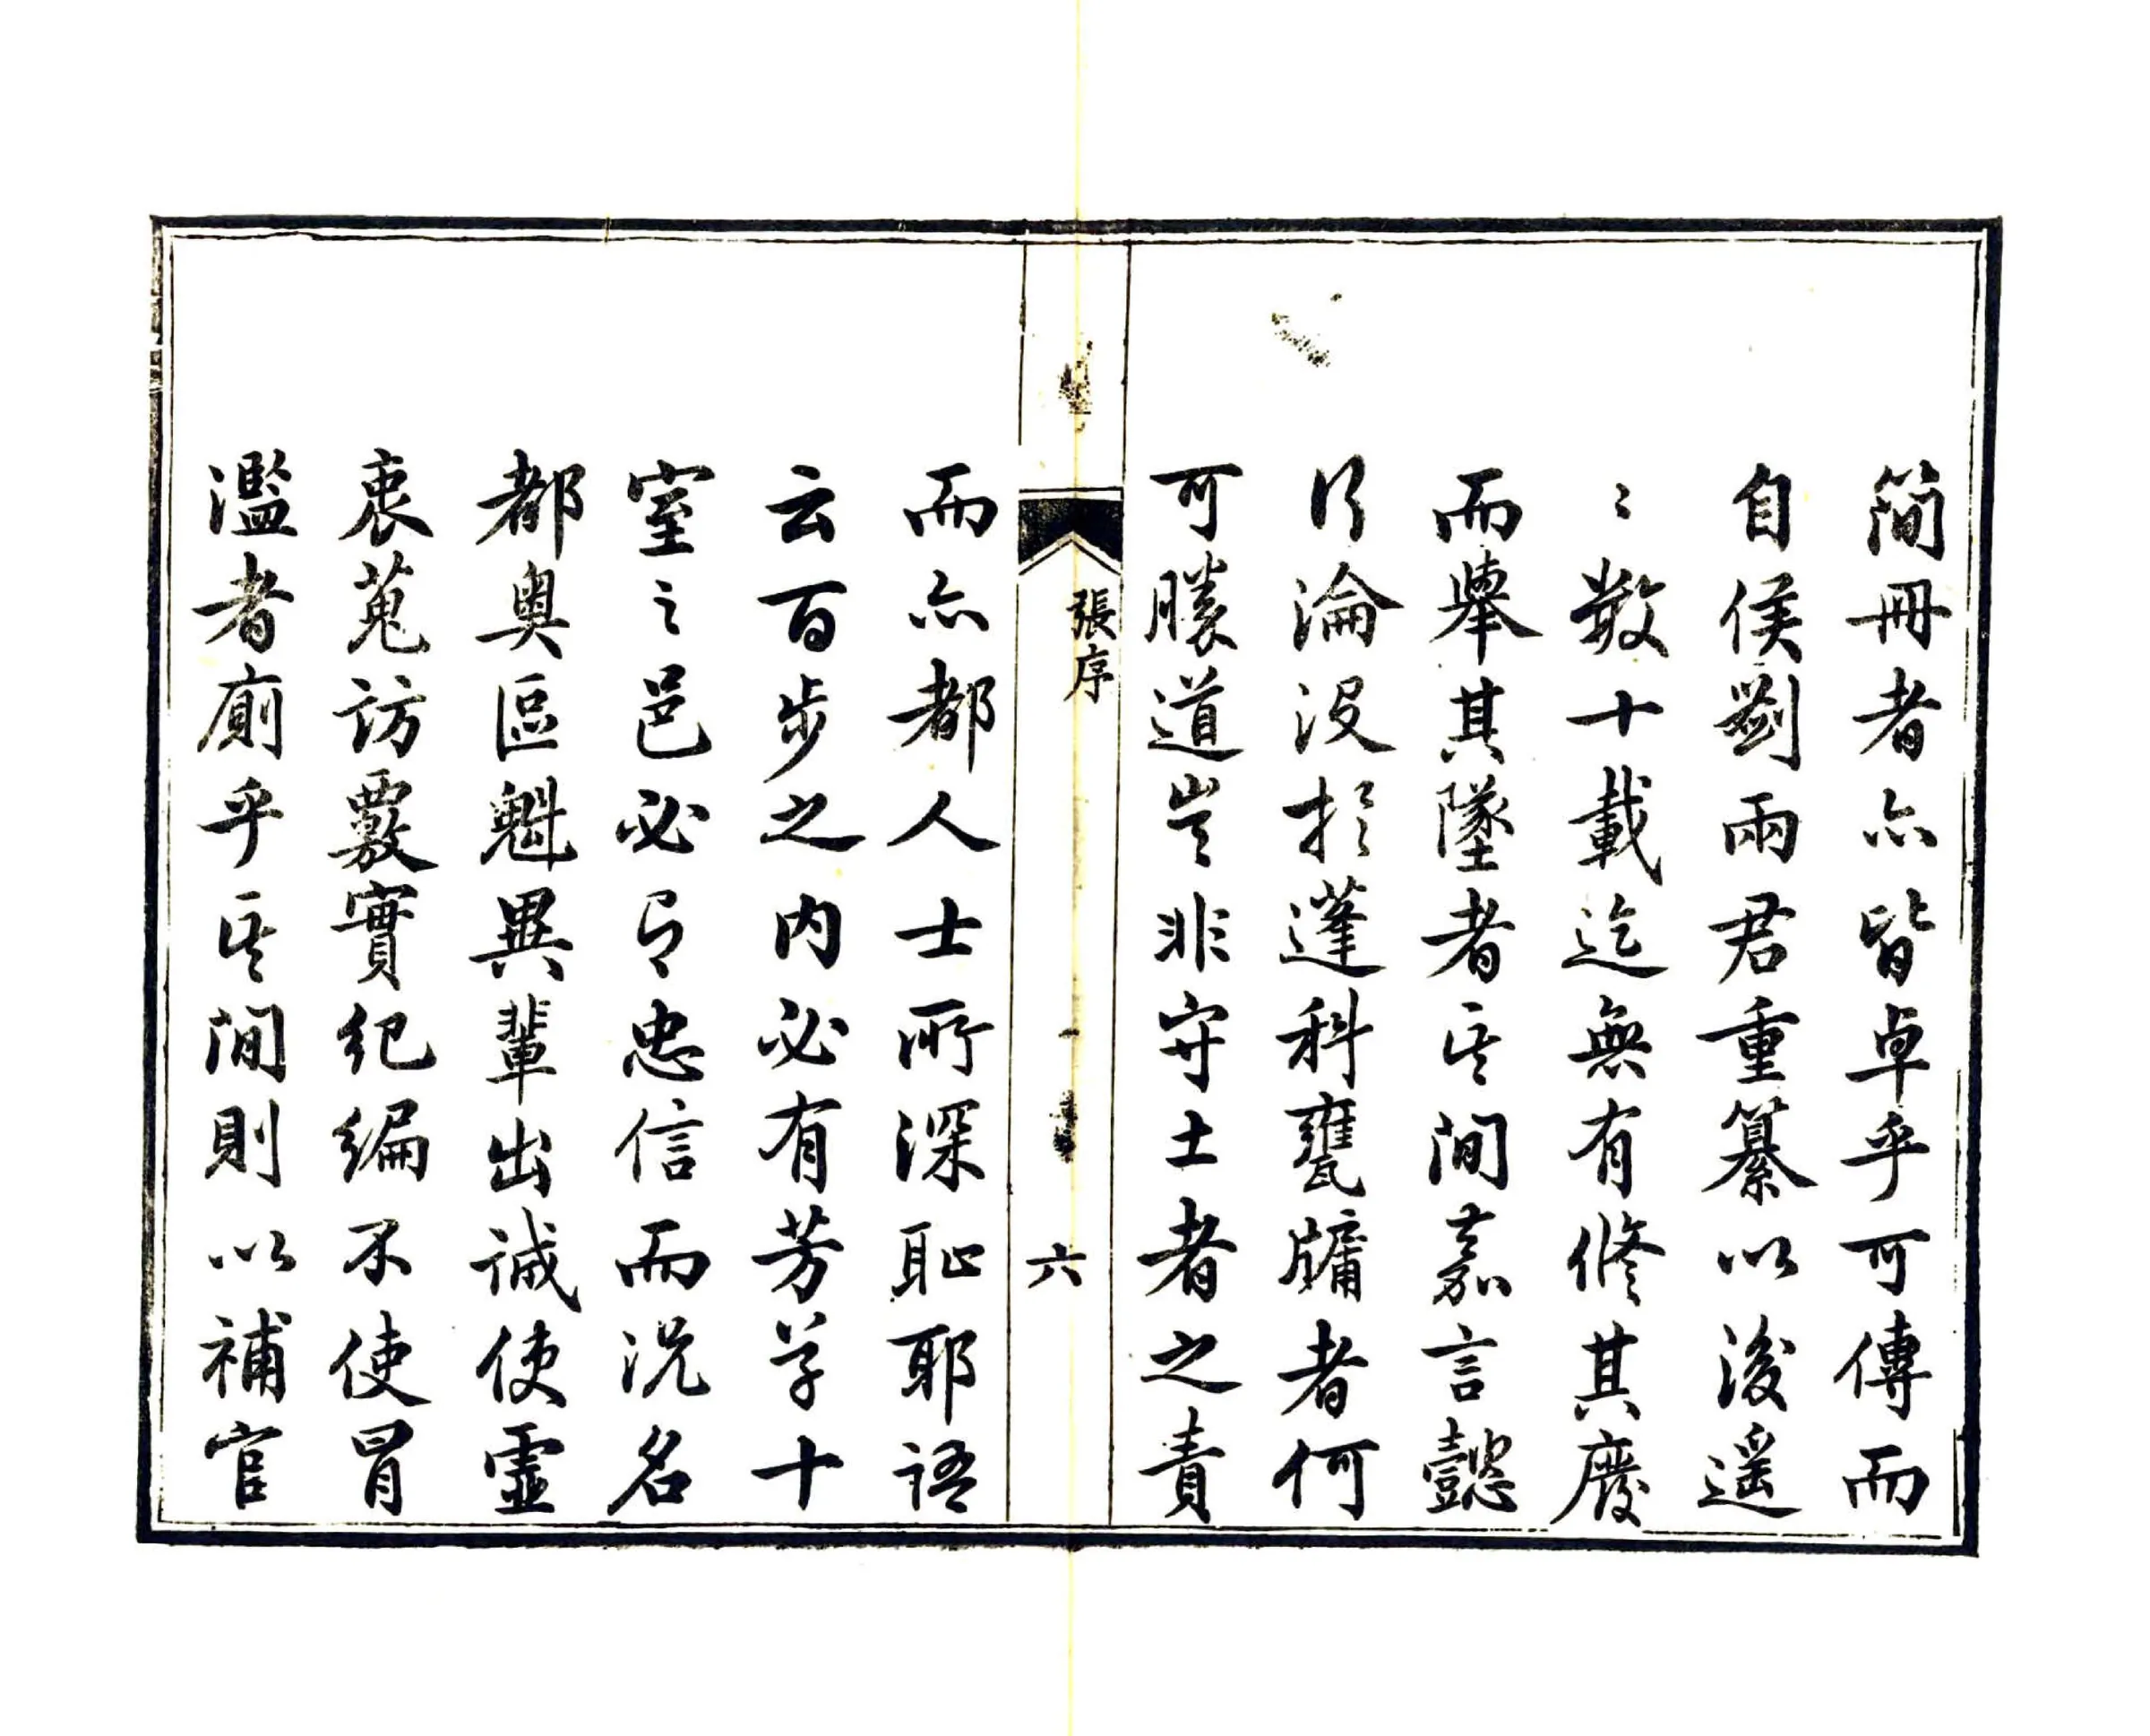 簡冊者亦皆卓乎可傳而
自侯劉兩君重纂以後遥
〻數十載迄無有修其廢
而舉其墜者其間嘉言懿
行淪没於蓬科甕牖者何
可勝道豈非守土者之責
張序
六
而亦都人士所深恥耶語
云百步之内必有芳草十
室之邑必有忠信而况名
都奥區魁異輩出誠使虛
衷蒐訪覈實紀編不使冒
濫者廁乎其間則以補官